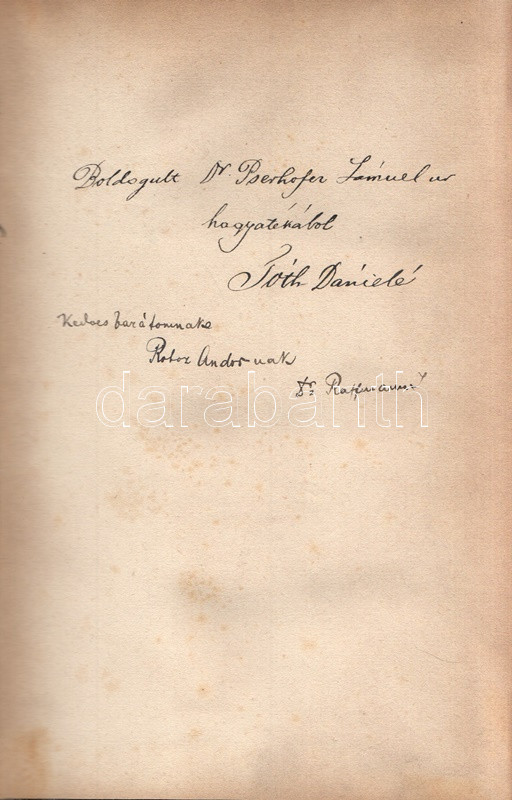 Boldogult Dr. Pserhofer Sámuel ur
hagyatékából
Tóth Dánielé
Kedves barátomnak
Andor nak
Dr.
darabanth